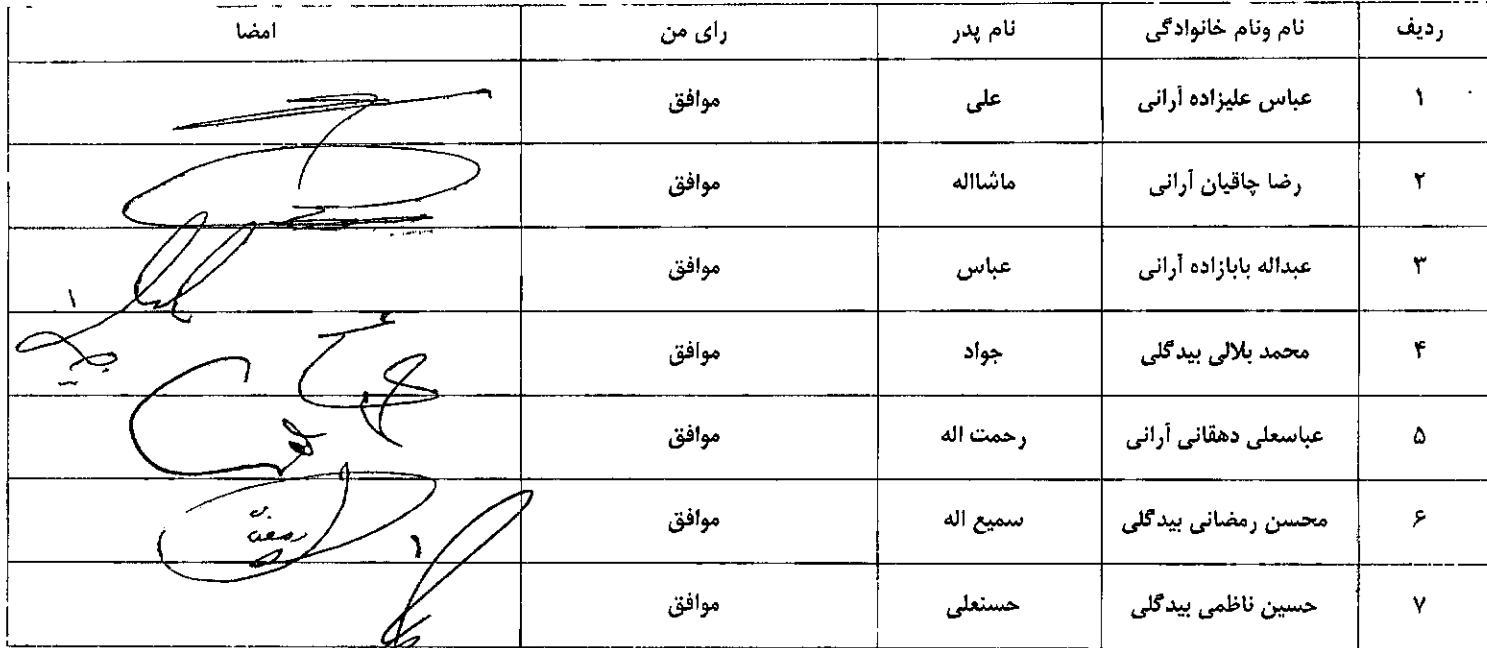 ردیف نام ونام خانوادگی نام پدر رای من امضا
۱ عباس علیزاده آرانی علی موافق
۲ رضا چاقیان آرانی ماشااله موافق
۳ عبداله بابازاده آرانی عباس موافق
۴ محمد بلالی بیدگلی جواد موافق
۵ عباسعلی دهقانی آرانی رحمت اله موافق
۶ محسن رمضانی بیدگلی سمیع اله موافق
۷ حسین ناظمی بیدگلی حسنعلی موافق